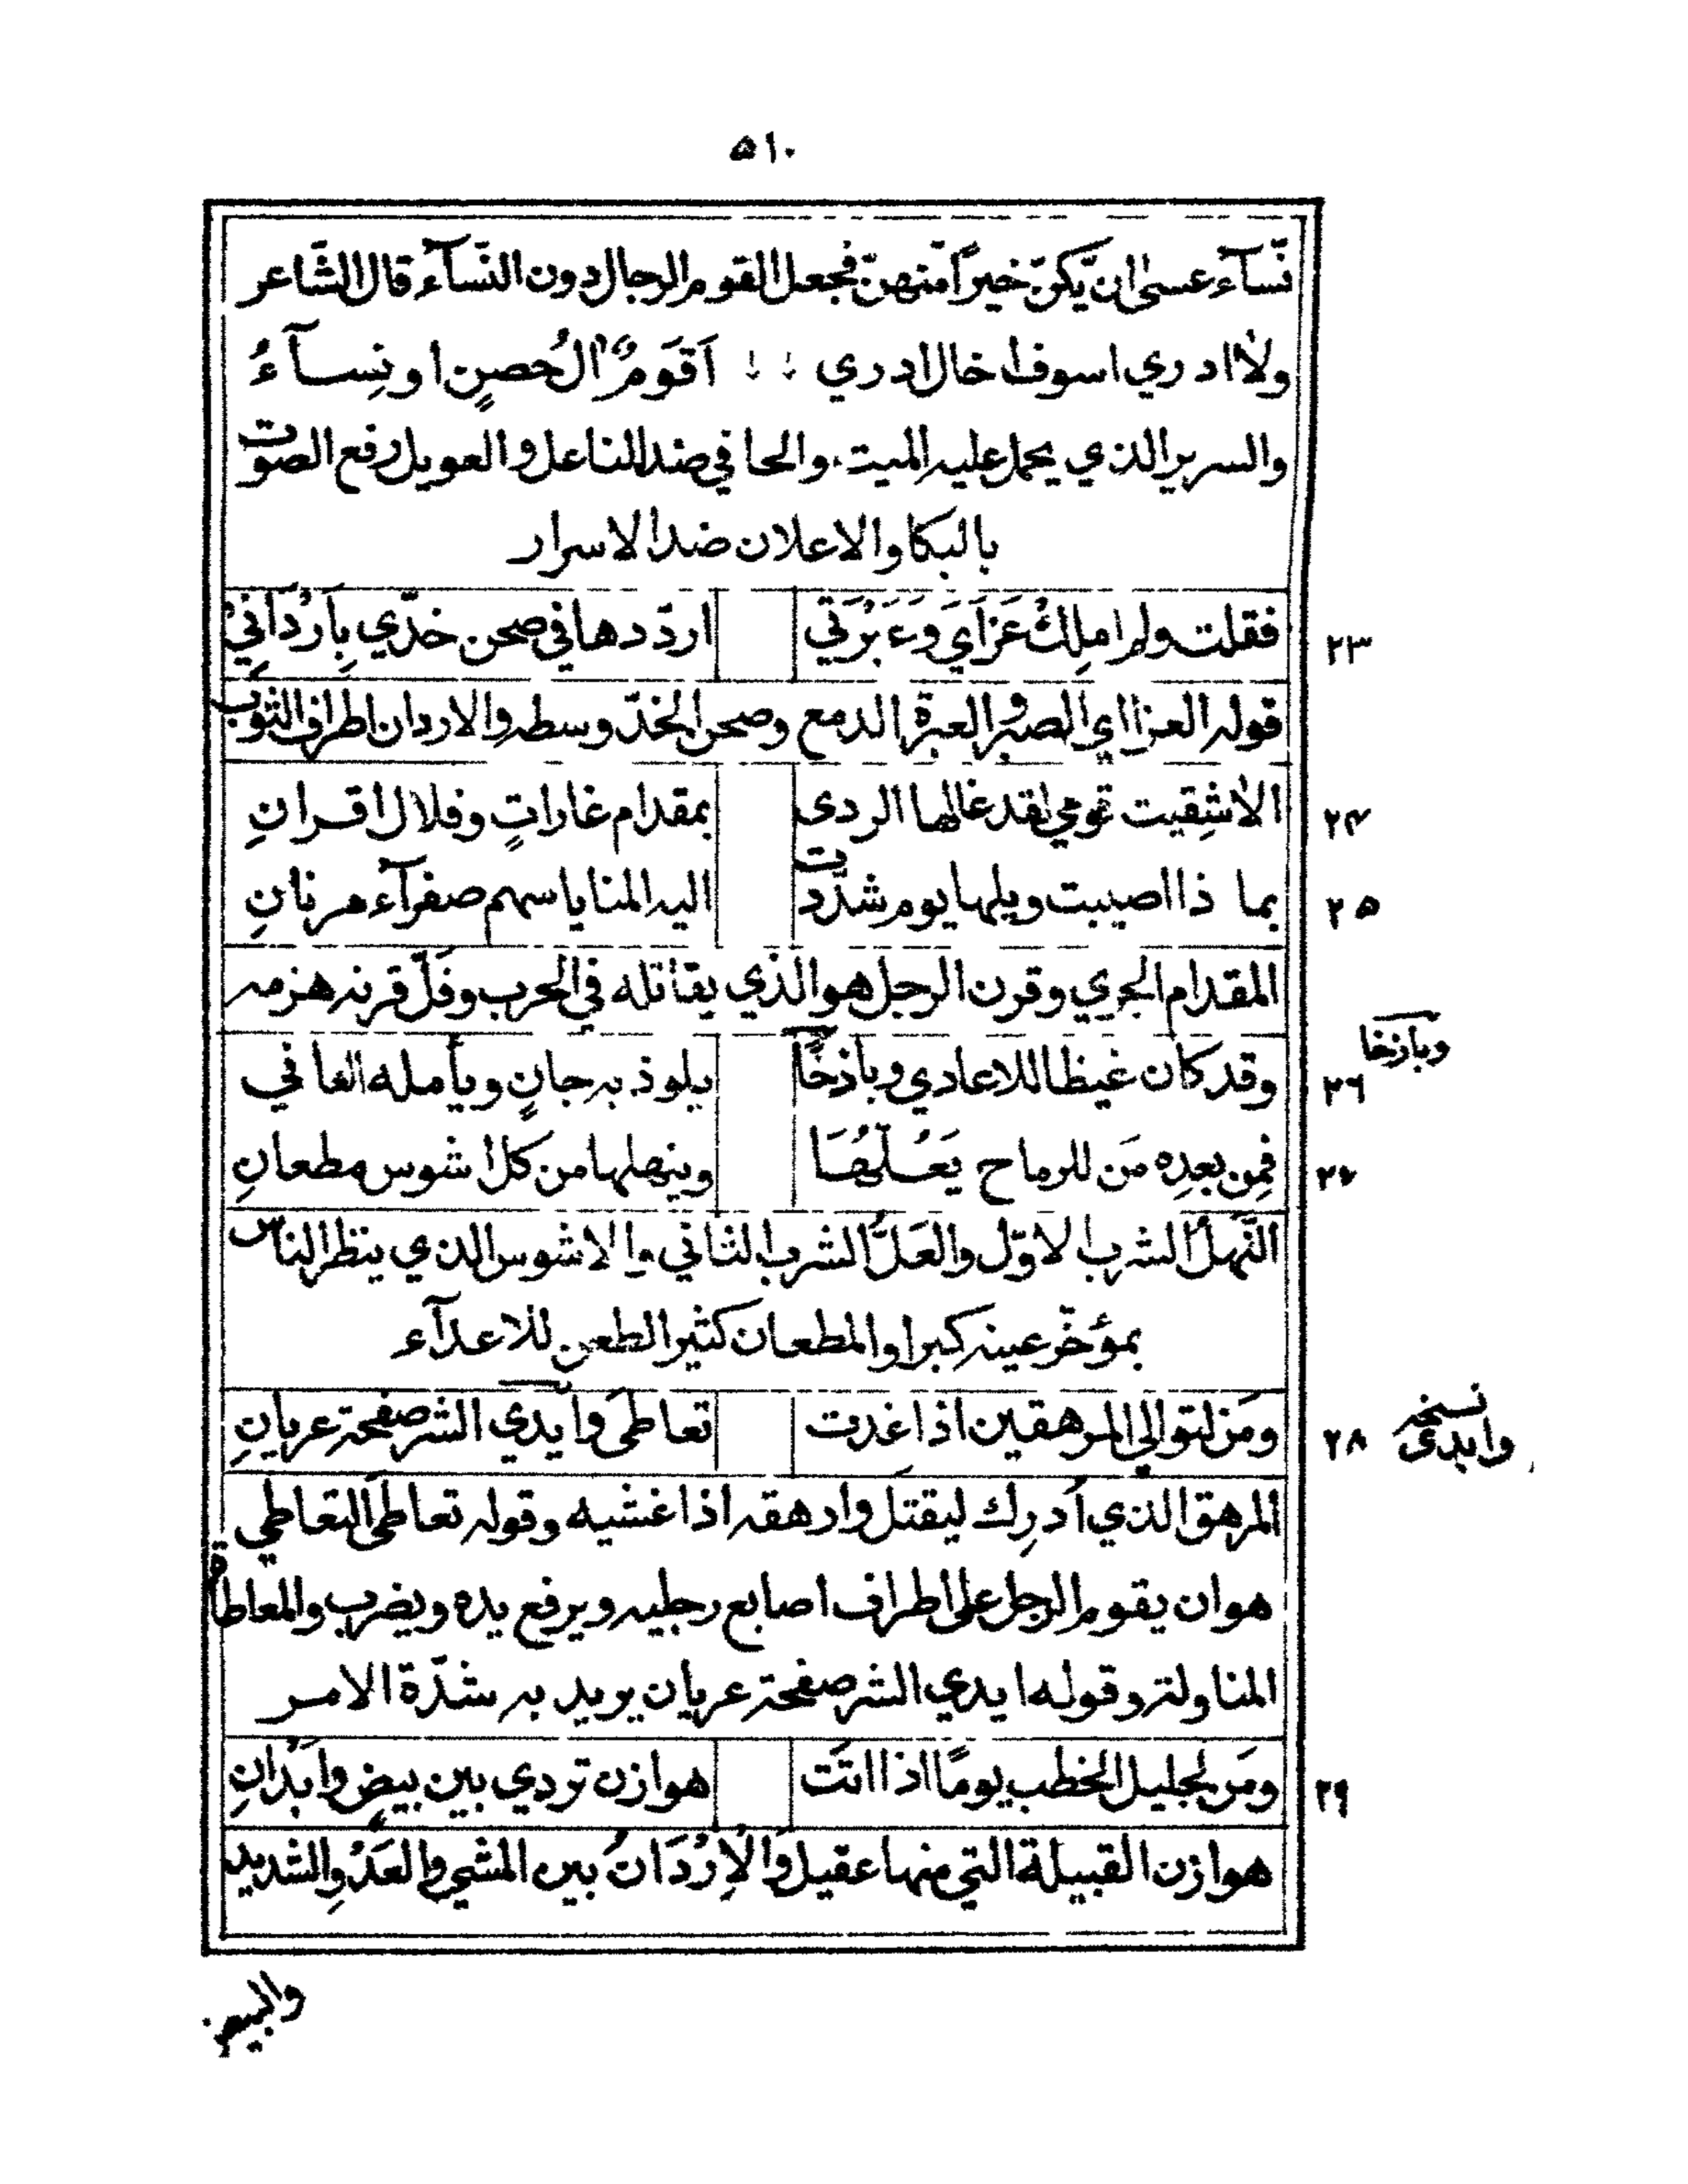 ٥١٠
نّسآء عسىٰ ان يّكنّ خيرًا مّنهنّ فجعل القوم الرجال دون النّسآء قال الشّاعر
ولا ادري اسوف اخال ادري اَقَومٌ اٰلُ حصنٍ او نِسآءُ
والسرير الذي يحمل عليه الميت والحافي ضد الناعل والعويل رفع الصوت
بالبكا والاعلان ضد الاسرار
٢٣ فقلت ولم املِكْ عَزَآي وَعَبْرَتي اردّدها في صحن خدّي بِاَرْدَاني
قوله العزا اي الصبر والعبرة الدمع وصحن الخدّ وسطه والاردان اطراف الثوب
٢٤ الا شِقيت قومي لقد غالها الردى بمقدام غاراتٍ وفلال اقرانِ
٢٥ بما ذا اصيبت ويلها يوم شدّدت اليه المنايا سهم صفرآء مرنانِ
المقدام الجري وقرن الرجل هو الذي يقاتله في الحرب وفَلّ قرنه هزمه
وباذخا
٢٦ وقد كان غيظا للاعادي وباذخًا يلوذ به جانٍ ويأمله العافي
٢٧ فمِن بعدِه مَن للرماح يَعُلّهَا وينهلها من كل اشوس مطعانِ
النَّهلُ الشرب الاوّل والعَلُّ الشرب الثاني والاشوس الذي ينظر الناس
بمؤخّر عينه كبرا والمطعان كثير الطعن للاعدآء
نسخه وابدى
٢٨ ومَن لتوالي المرهقين اذا غدت تعاطى وايدي الشر صفحة عريانِ
المرهق الذي اُدرِك ليقتل وارهقه اذا غشيه وقوله تعاطى التعاطي
هو ان يقوم الرجل على اطراف اصابع رجليه ويرفع يده ويضرب والمعاطاة
المناولة وقوله ايدي الشر صفحة عريان يريد به شدّة الامر
٢٩ ومَن لجليل الخطب يومًا اذا اتَت هوازن تردي بين بيضٍ وابْدانِ
هوازن القبيلة التي منها عقيل وَالاِرْدَانُ بين المشي والعَدْوِ الشديد
والبيض